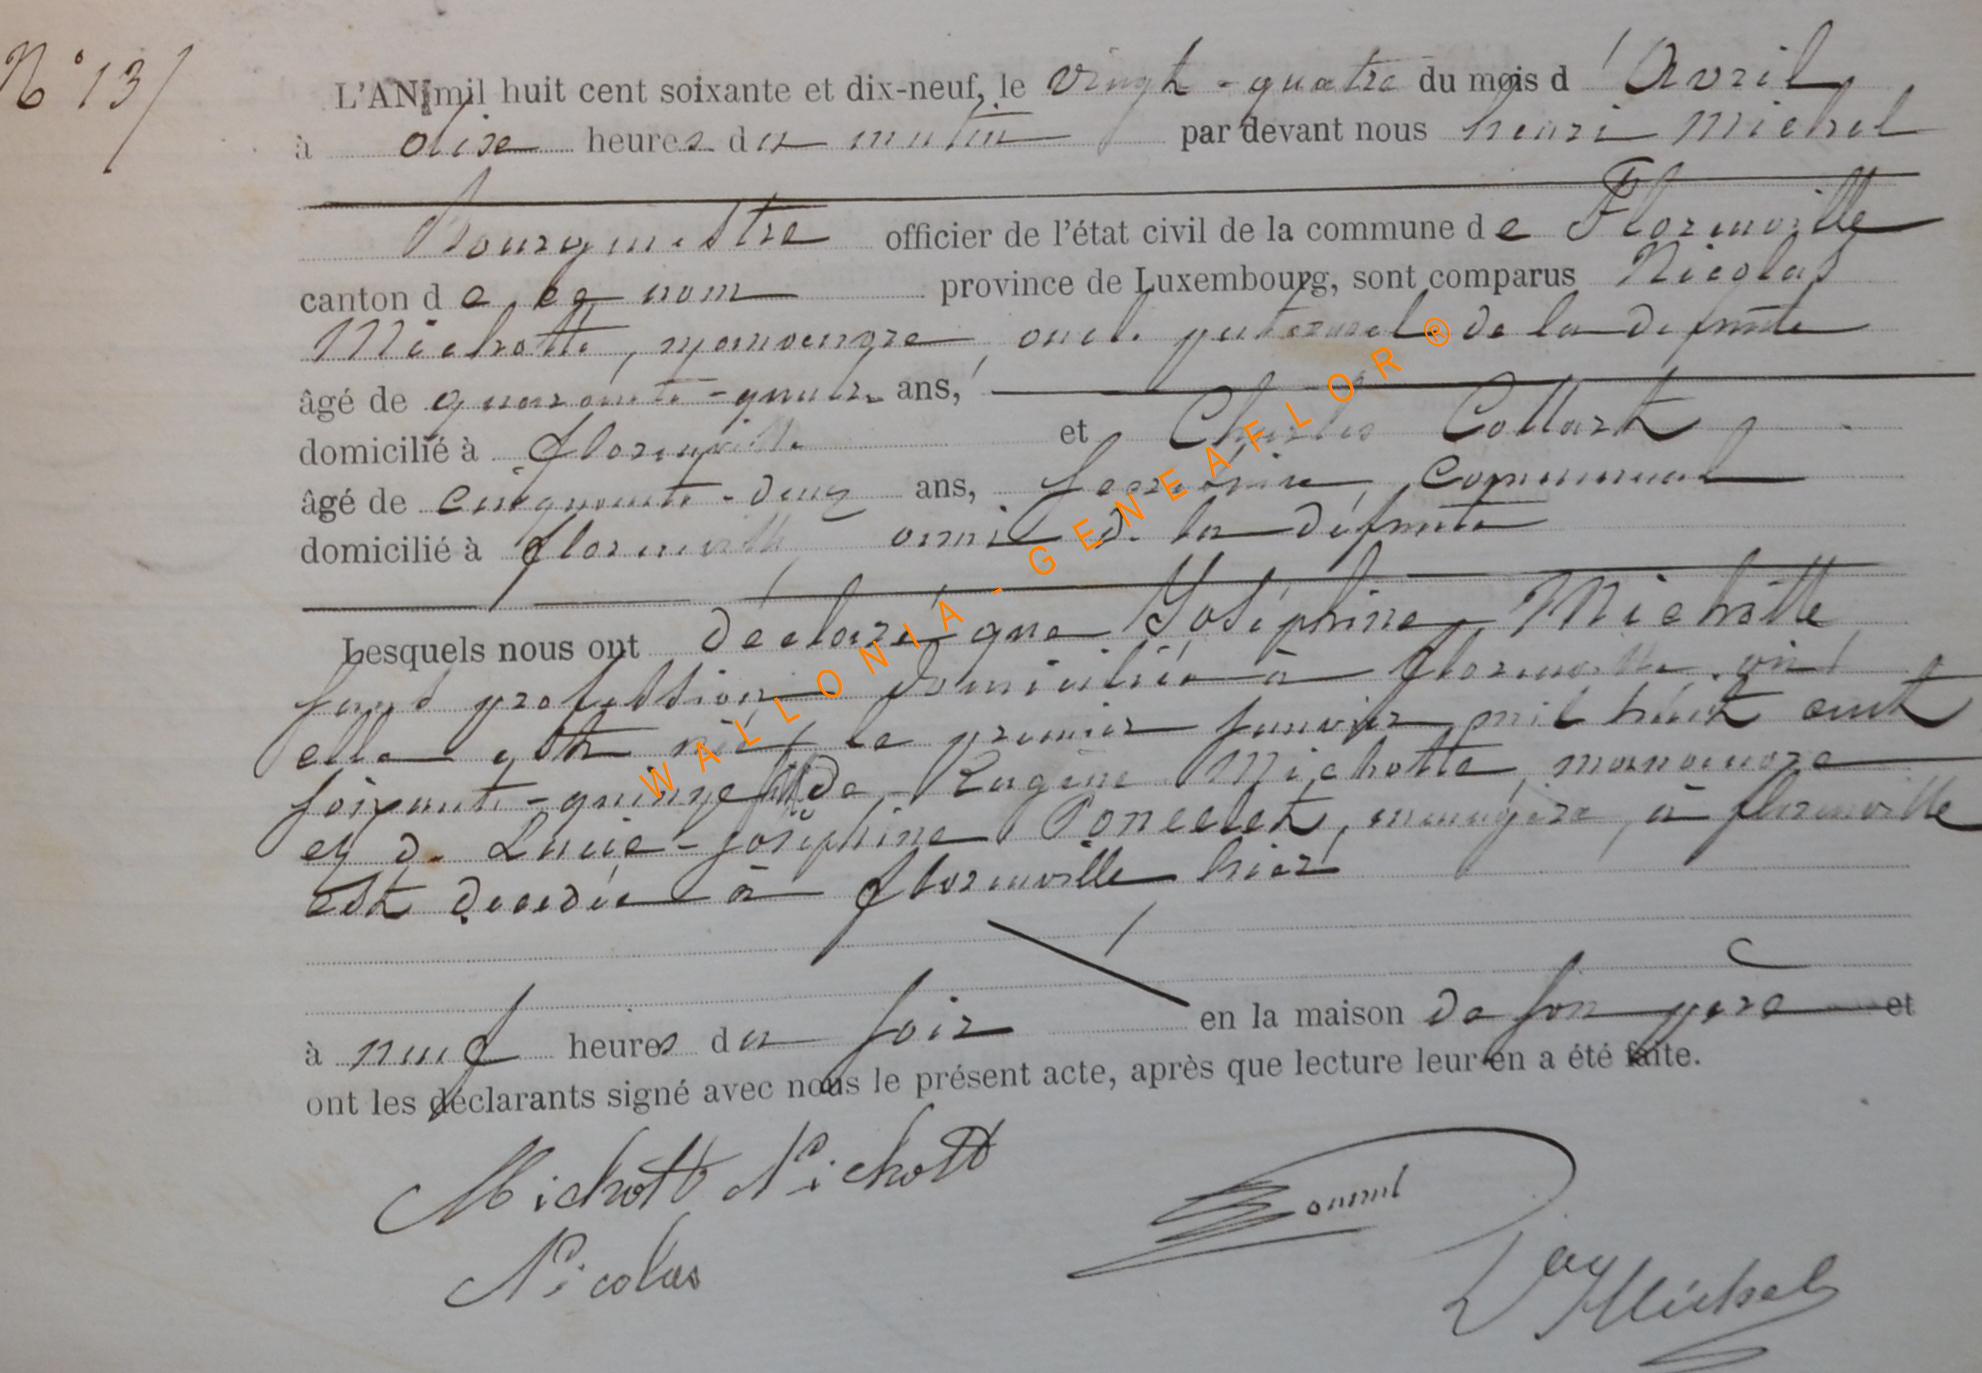 N° 13
L'AN mil huit cent soixante et dix-neuf, le vingt-quatre du mois d'Avril
à onze heures du matin par devant nous henri Michel
Bourgmestre officier de l'état civil de la commune de Florenville
canton de ce nom province de Luxembourg, sont comparus Nicolas
Michotte, manœuvre, oncle paternel de la défunte
âgé de quarante- ans,
domicilié à florenville et Charles Collart
âgé de cinquante-deux ans, communal
domicilié à florenville ami de la défunte
Lesquels nous ont déclaré que Joséphine Michotte
sans profession domiciliée à florenville où
elle est née le premier janvier mil huit cent
soixante-quinze de Eugène Michotte, manœuvre
et de Lucie-Joséphine Poncelet, ménagère, à florenville
est décédée à florenville hier
à neuf heures du soir en la maison de son père et
ont les déclarants signé avec nous le présent acte, après que lecture leur en a été faite.
Michott Michott
Nicolas
Michel
WALLONIA - GENEAFLOR ®